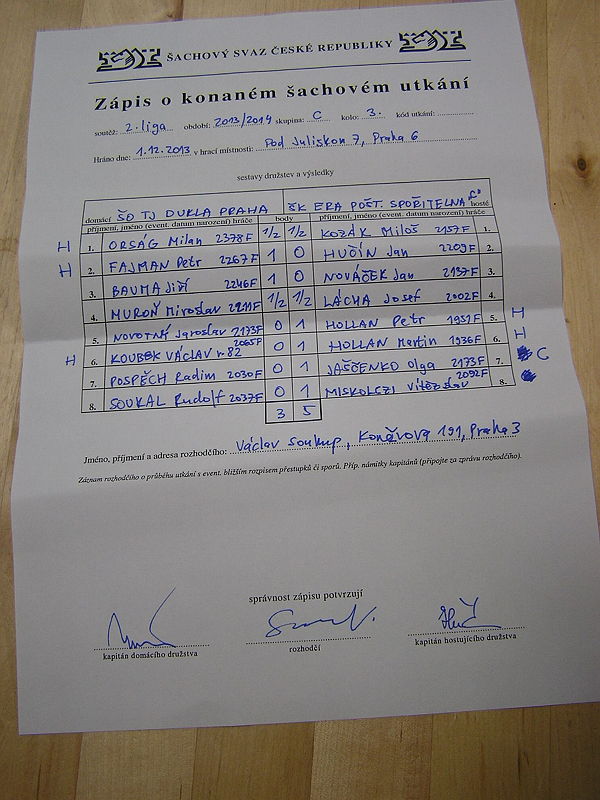 ŠACHOVÝ SVAZ ČESKÉ REPUBLIKY
Zápis o konaném šachovém utkání
soutěž: 2. liga období: 2013/2014 skupina: C kolo: 3. kód utkání:
Hráno dne: 1.12.2013 v hrací místnosti: Pod Juliskou 7, Praha 6
sestavy družstev a výsledky
domácí ŠO TJ DUKLA PRAHA ŠK ERA POŠT. SPOŘITELNA "C" hosté
příjmení, jméno (event. datum narození) hráče body příjmení, jméno (event. datum narození) hráče
H 1. ORSÁG Milan 2378F 1/2 1/2 KOZÁK Miloš 2157F 1.
H 2. FAJMAN Petr 2267F 1 0 HUČÍN Jan 2209F 2.
3. BAUMA Jiří 2246F 1 0 NOVÁČEK Jan 2137F 3.
4. MUROŇ Miroslav 2211F 1/2 1/2 LÁCHA Josef 2002F 4.
5. NOVOTNÝ Jaroslav 2173F 0 1 HOLLAN Petr 1931F 5. H
H 6. KOUBEK VÁCLAV r. 82 2065F 0 1 HOLLAN Martin 1936F 6. H
7. POSPĚCH Radim 2030F 0 1 JAŠČENKO Olga 2173F 7. C
8. SOUKAL Rudolf 2037F 0 1 MISKOLCZI Vítězslav 2092F 8.
3 5
Jméno, příjmení a adresa rozhodčího: Václav Soukup, Koněvova 191, Praha 3
Záznam rozhodčího o průběhu utkání s event. bližším rozpisem přestupků či sporů. Příp. námitky kapitánů (připojte za zprávu rozhodčího).
správnost zápisu potvrzují
kapitán domácího družstva rozhodčí kapitán hostujícího družstva